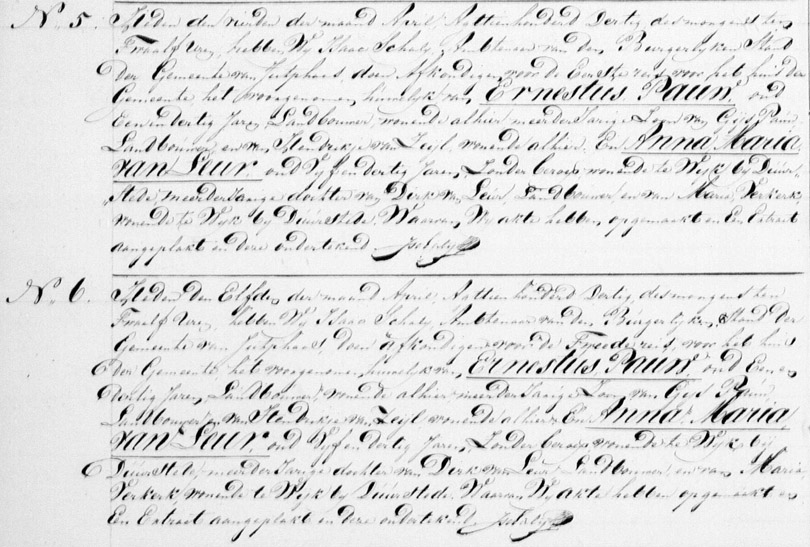 No. 5. Heden den vierden der maand April, Agttienhonderd Dertig des morgens ten
Twaalf Uren, hebben Wy Isaac Schaly, Ambtenaar van den Burgerlyken Stand
Der Gemeente van Jutphaas, doen Afkondigen, voor de Eerste reis, voor het huis der
Gemeente het voorgenomen huwelyk van, Ernestus Paun, oud
Een en dertig Jaren, Landbouwer, wonende alhier, meerderJarige Zoon van Gys Paun
Landbouwer, en van Hendrikje van Zeyl, wonende alhier, En Anna Maria
van Leur, oud Vyf en dertig Jaren, Zonder beroep, wonende te Wyk by Duur-
stede, meerderJarige dochter van Dirk van Leur, Landbouwer, en van Maria Verkerk,
wonende te Wyk by Duurstede. Waarvan, Wy akte hebben, opgemaakt en Een Extract
aangeplakt en deze ondertekend
No. 6. Heden den Elfden der maand April, Agttienhonderd Dertig, des morgens ten
Twaalf Uren, hebben Wy Isaac Schaly Ambtenaar van den Burgerlyken Stand Der
Gemeente van Jutphaas, doen afkondigen voor de Tweede reis, voor het huis
der Gemeente het voorgenomen huwelyk van, Ernestus Paun, oud Een en
dertig Jaren, Landbouwer, wonende alhier meerderJarige Zoon van Gys Paun,
Landbouwer en van Hendrikje van Zeyl wonende alhier En Anna Maria
van Leur, oud Vyf en dertig Jaren, Zonder beroep wonende te Wyk, by
Duurstede, meerderJarige dochter van Dirk van Leur, Landbouwer, en van Maria
Verkerk wonende te Wyk by Duurstede. Waarvan, Wy akte hebben opgemaakt en
Een Extract aangeplakt en deze ondertekend